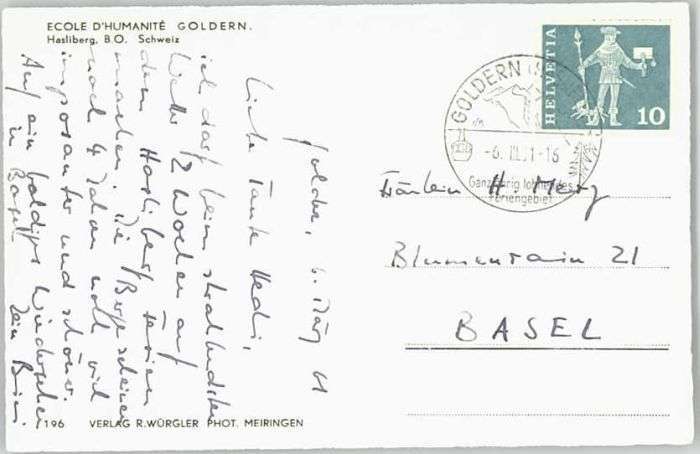 ECOLE D'HUMANITÉ GOLDERN.
Hasliberg, B.O. Schweiz
Goldern, 6. März 61
Liebe Tante Hedi,
ich darf beim strahlendsten
Wetter 2 Wochen auf
dem Hasliberg Ferien
machen. Die Berge scheinen
nach 4 Jahren noch viel
imposanter und schöner.
Auf ein baldiges Wiedersehen
in Basel
Dein
196 VERLAG R. WÜRGLER PHOT. MEIRINGEN
HELVETIA
10
GOLDERN
-6. III. 61-16
Ganzjährig lohnendes
Feriengebiet
Fräulein H. Merz
Blumenrain 21
BASEL